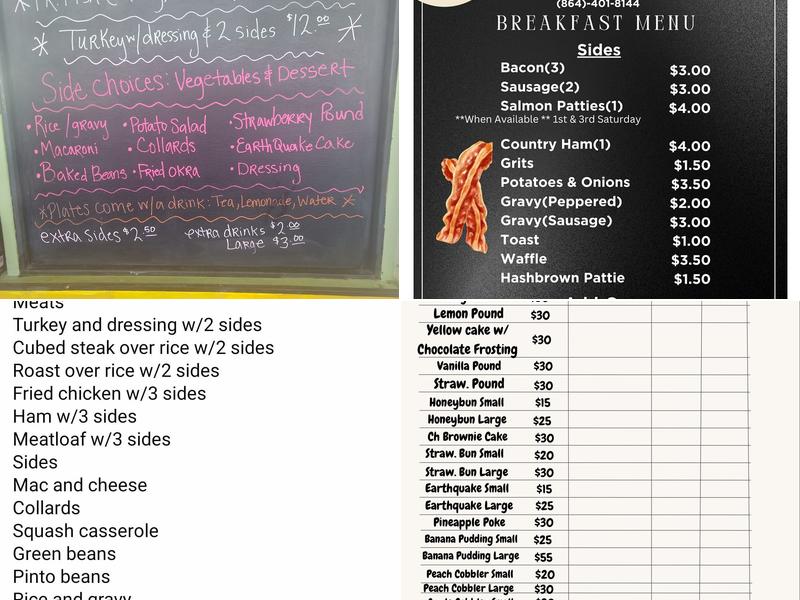 * Turkey w/dressing & 2 sides $12.00 *
Side choices: Vegetables & Dessert
• Rice/gravy • Potato Salad • Strawberry Pound
• Macaroni • Collards • Earthquake Cake
• Baked Beans • Fried Okra • Dressing
* Plates come w/a drink: Tea, Lemonade, Water *
extra sides $2.50 extra drinks $2.00
Large $3.00
(864)-401-8144
BREAKFAST MENU
Sides
Bacon(3) $3.00
Sausage(2) $3.00
Salmon Patties(1) $4.00
**When Available ** 1st & 3rd Saturday
Country Ham(1) $4.00
Grits $1.50
Potatoes & Onions $3.50
Gravy(Peppered) $2.00
Gravy(Sausage) $3.00
Toast $1.00
Waffle $3.50
Hashbrown Pattie $1.50
Meats
Turkey and dressing w/2 sides
Cubed steak over rice w/2 sides
Roast over rice w/2 sides
Fried chicken w/3 sides
Ham w/3 sides
Meatloaf w/3 sides
Sides
Mac and cheese
Collards
Squash casserole
Green beans
Pinto beans
Rice and gravy
Lemon Pound $30
Yellow cake w/
Chocolate Frosting $30
Vanilla Pound $30
Straw. Pound $30
Honeybun Small $15
Honeybun Large $25
Ch Brownie Cake $30
Straw. Bun Small $20
Straw. Bun Large $30
Earthquake Small $15
Earthquake Large $25
Pineapple Poke $30
Banana Pudding Small $25
Banana Pudding Large $55
Peach Cobbler Small $20
Peach Cobbler Large $30